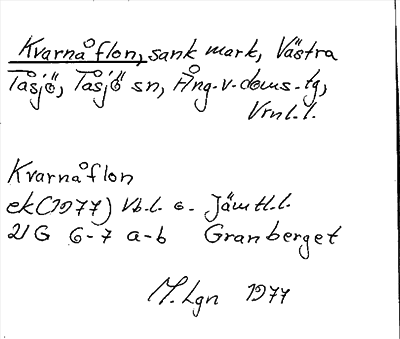 Kvarnåflon, sank mark, Västra
Tåsjö, Tåsjö sn, Ång. v. doms. tg,
Vrnl. l.
Kvarnåflon
ek (1977) Vb. l. o. Jämtl. l.
21G 6-7 a-b Granberget
M. Lgn 1977